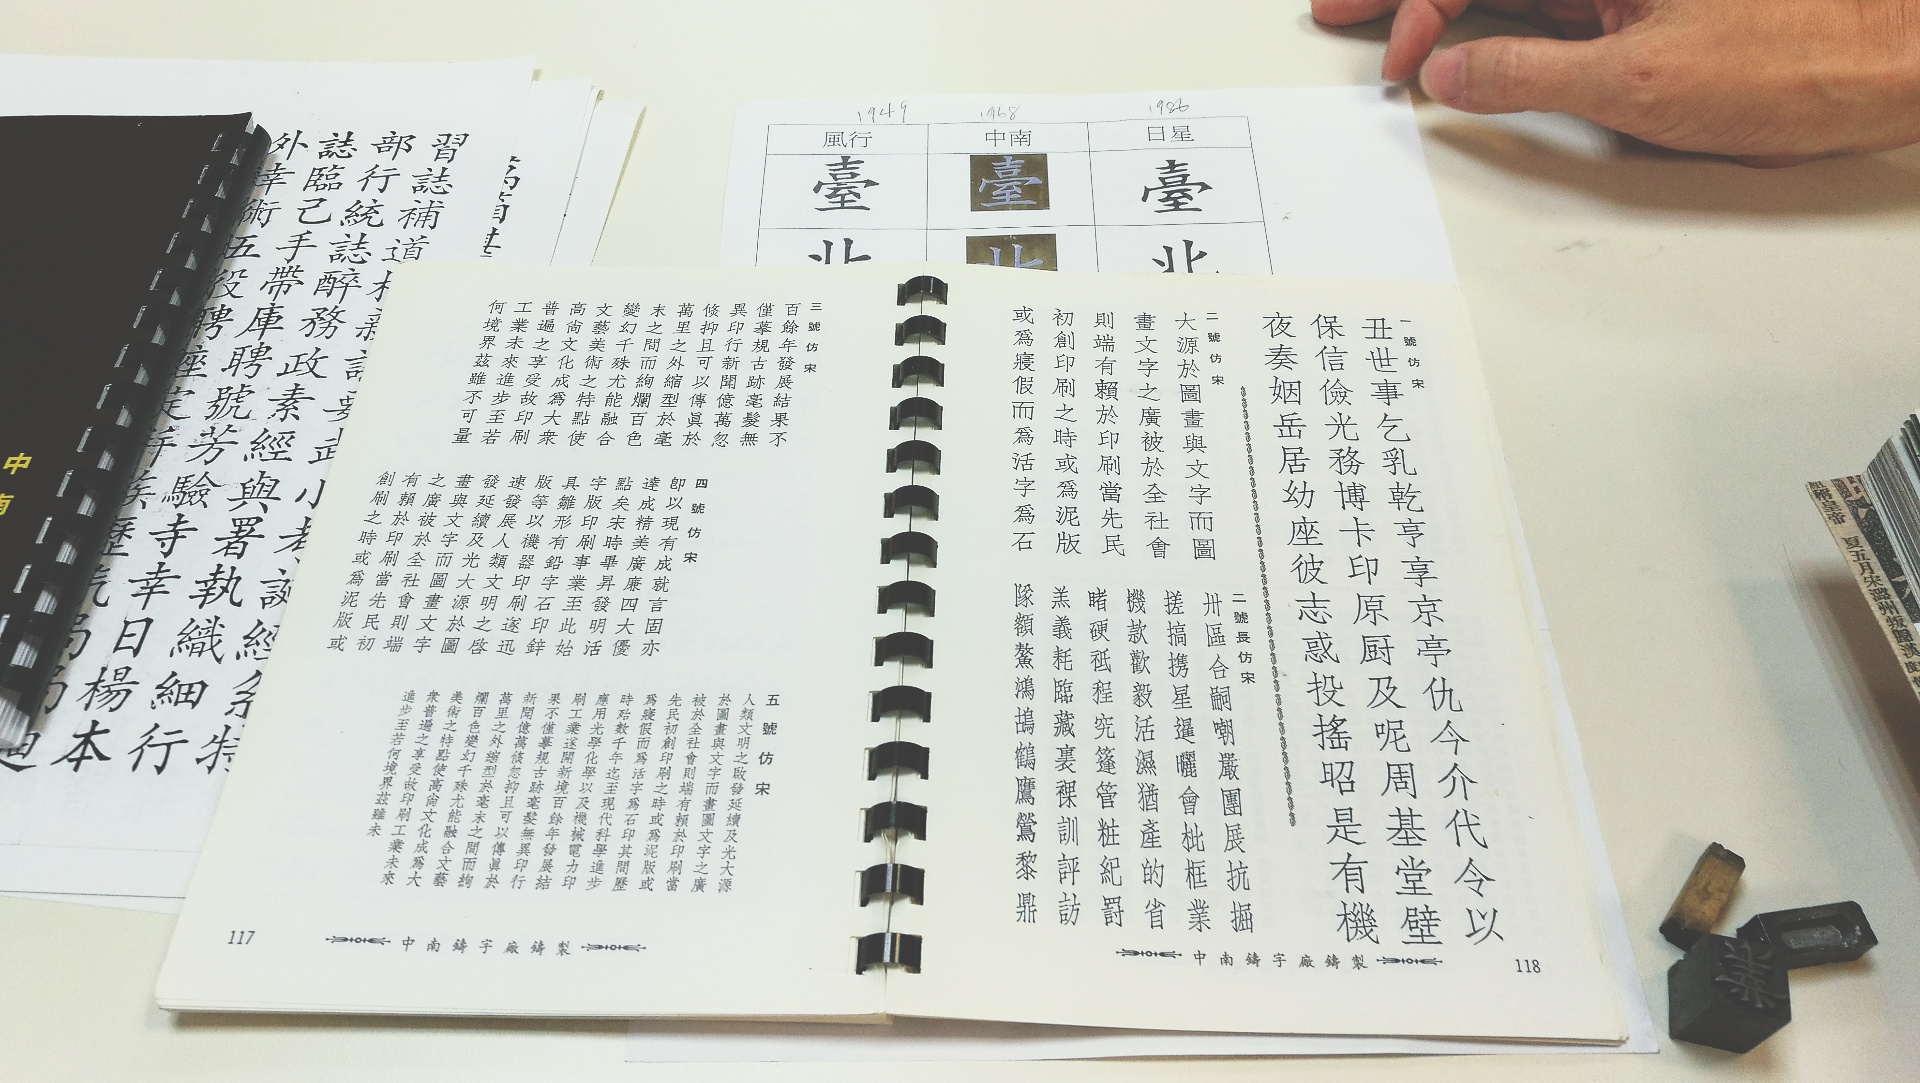 1949 1968 1986
風行 中南 日星
臺 臺 臺
北 北 北
一號仿宋
丑世事乞乳乾亨享京亭仇今介代令以
保信儉光務博卡印原厨及呢周基堂壁
夜奏姻岳居幼座彼志惑投搖昭是有機
二號仿宋
大源於圖畫與文字而圖
畫文字之廣被於全社會
則端有賴於印刷當先民
初創印刷之時或爲泥版
或爲寢假而爲活字爲石
二號長仿宋
卅區合嗣嘲嚴團展抗掘
搓搞携星暹曬會枇框業
機款歡毅活濕猶產的省
睹硬祗程究篷管粧紀罸
羔義耗臨藏裏稞訓評訪
隊額鰲鴻鴣鶴鷹鶯黎鼎
中南鑄字廠鑄製
118
三號仿宋
百餘年發展結果不
僅摹規古跡毫髮無
異印行新聞億萬忽
倐抑且可以傳眞於
萬里之外縮型於毫
末之間而絢爛百色
變幻千殊尤能融合
文藝美術之特點使
高尙文化成爲大衆
普遍之享受故印刷
工業未來進步至若
何境界茲雖不可量
四號仿宋
卽以現有成就言固亦
達成精美廣廉四大優
點矣宋時畢昇發明活
字版印刷事業至此始
具雛形有鉛字石印鋅
版等以機器印刷遂迅
速發展人類文明之啓
發延續及光大源於圖
畫與文字而圖畫文字
之廣被於全社會則端
有賴於印刷當先民初
創刷之時或爲泥版或
五號仿宋
人類文明之啟發延續及光大源
於圖畫與文字而畫圖文字之廣
被於全社會則端有賴於印刷當
先民初創印刷之時或爲泥版或
爲寢假而爲活字爲石印其間歷
時殆數千年迄至現代科學進步
應用光學化學以及機械電力印
刷工業遂開新境百餘年發展結
果不僅摹規古跡毫髮無異印行
新聞億萬倐忽抑且可以傳眞於
萬里之外縮型於毫末之間而絢
爛百色變幻千殊尤能融合文藝
美術之特點使高尙文化成爲大
衆普遍之享受故印刷工業未來
進步至若何境界茲雖未
中南鑄字廠鑄製
117
習誌補道
部行統誌醉務政素經與署執織細行
誌臨己手帶庫聘號芳驗寺幸日楊本
外幸術五役聘座定
中南
皇帝
夏五月宋潞州叛歸漢
業